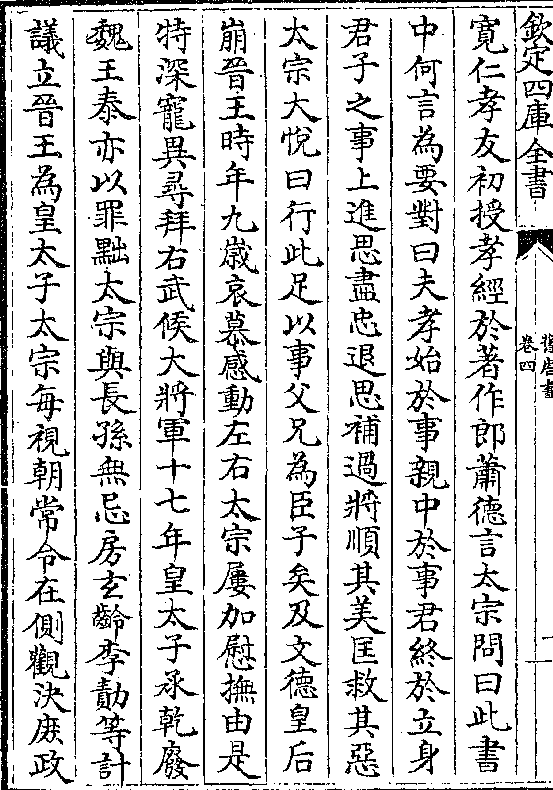 欽定四庫全書
舊唐書
卷四
二
寛仁孝友初授孝經於著作郎蕭德言太宗問曰此書
中何言為要對曰夫孝始於事親中於事君終於立身
君子之事上進思盡忠退思補過將順其美匡救其惡
太宗大悅曰行此足以事父兄為臣子矣及文德皇后
崩晉王時年九歲哀慕感動左右太宗屢加慰撫由是
特深寵異尋拜右武候大將軍十七年皇太子承乾廢
魏王泰亦以罪黜太宗與長孫無忌房玄齡李勣等計
議立晉王為皇太子太宗每視朝常令在側觀決庶政